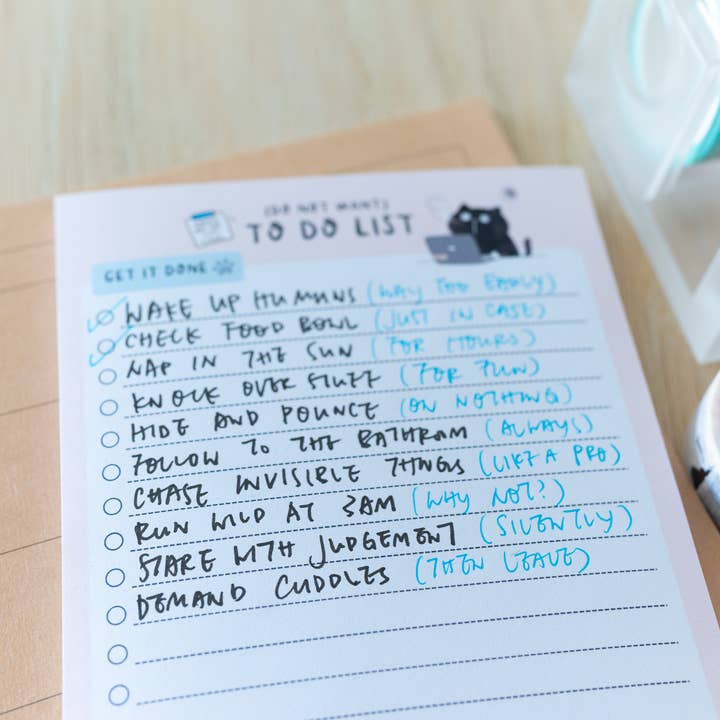 (DO NOT WANT)
TO DO LIST
GET IT DONE
WAKE UP HUMANS (WAY TOO EARLY)
CHECK FOOD BOWL (JUST IN CASE)
NAP IN THE SUN (FOR HOURS)
KNOCK OVER STUFF (FOR FUN)
HIDE AND POUNCE (ON NOTHING)
FOLLOW TO THE BATHROOM (ALWAYS)
CHASE INVISIBLE THINGS (LIKE A PRO)
RUN WILD AT 3AM (WHY NOT?)
STARE WITH JUDGEMENT (SILENTLY)
DEMAND CUDDLES (THEN LEAVE)